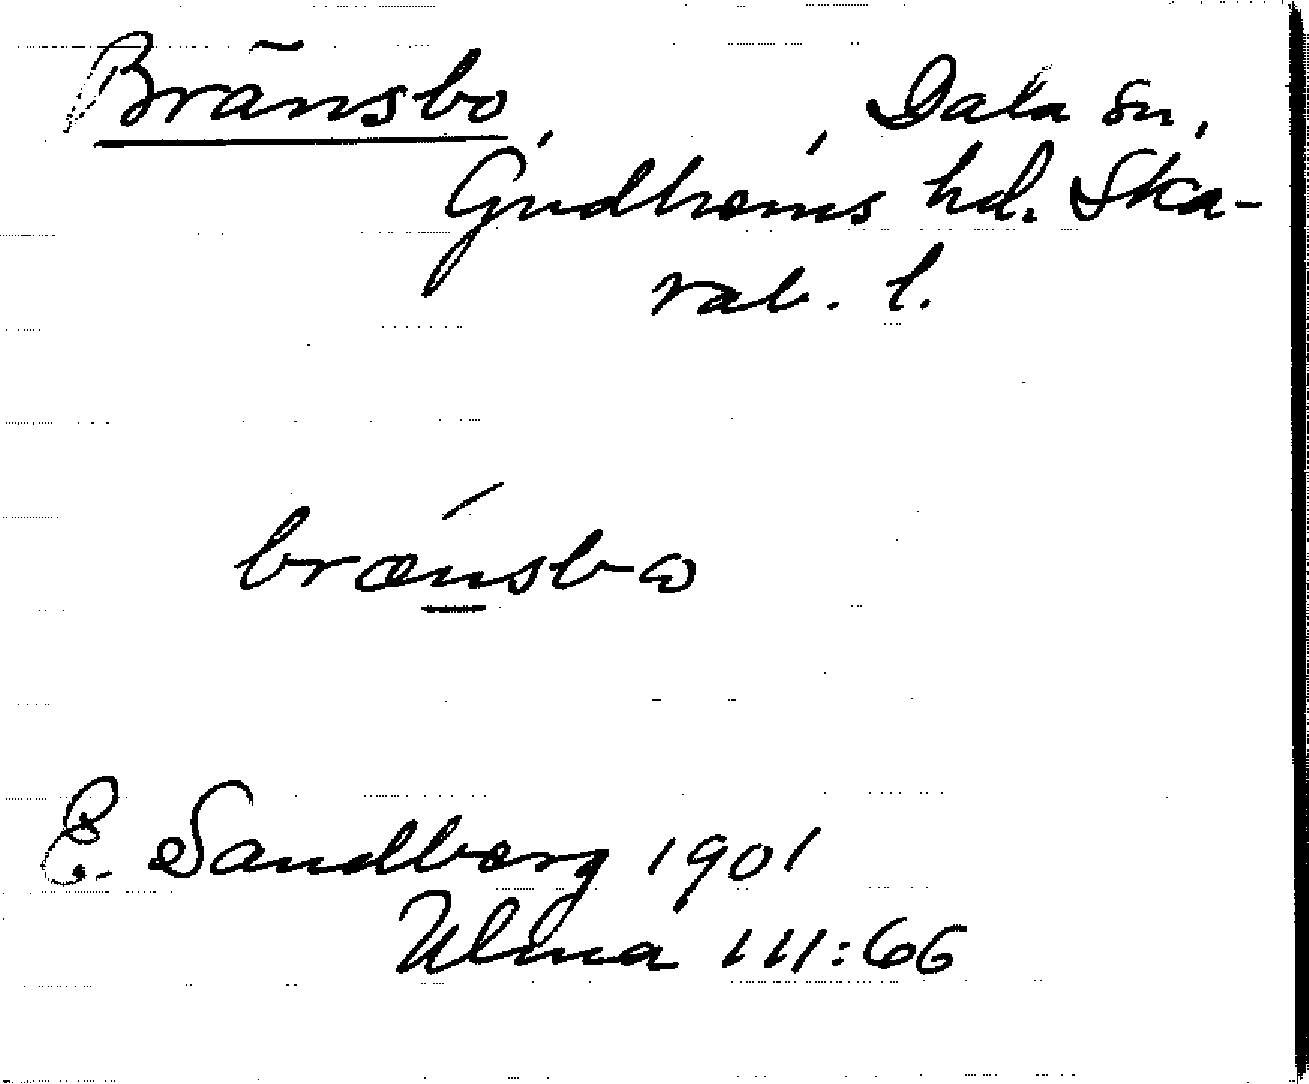 Bränsbo, , Dala sn,
Gudhems hd. Ska-
rab. l.
brænsbω
E. Sandberg 1901
Ulma 111:66